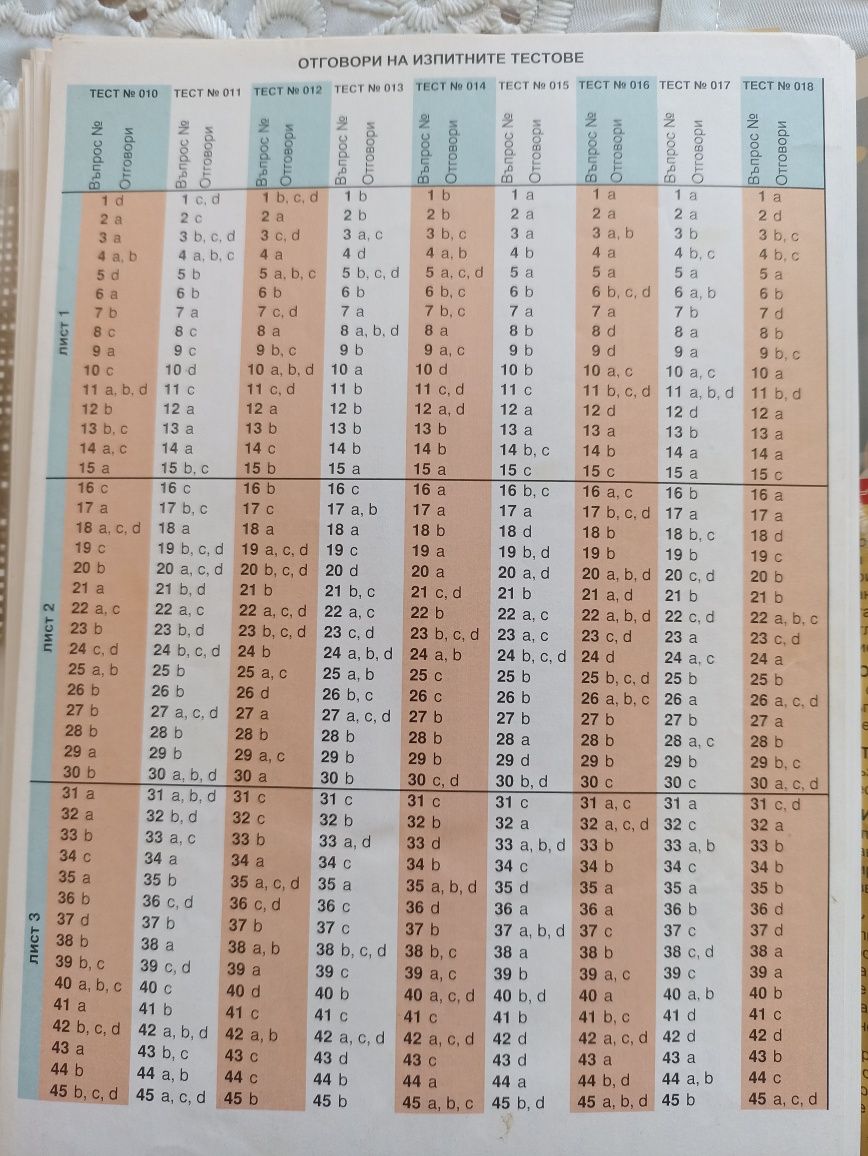 ОТГОВОРИ НА ИЗПИТНИТЕ ТЕСТОВЕ
ТЕСТ № 010 ТЕСТ № 011 ТЕСТ № 012 ТЕСТ № 013 ТЕСТ № 014 ТЕСТ № 015 ТЕСТ № 016 ТЕСТ № 017 ТЕСТ № 018
Въпрос № Отговори Въпрос № Отговори Въпрос № Отговори Въпрос № Отговори Въпрос № Отговори Въпрос № Отговори Въпрос № Отговори Въпрос № Отговори Въпрос № Отговори
ЛИСТ 1
1 d 1 c, d 1 b, c, d 1 b 1 b 1 a 1 a 1 a 1 a
2 a 2 c 2 a 2 b 2 b 2 a 2 a 2 a 2 d
3 a 3 b, c, d 3 c, d 3 a, c 3 b, c 3 a 3 a, b 3 b 3 b, c
4 a, b 4 a, b, c 4 a 4 d 4 a, b 4 b 4 a 4 b, c 4 b, c
5 d 5 b 5 a, b, c 5 b, c, d 5 a, c, d 5 a 5 a 5 a 5 a
6 a 6 b 6 b 6 b 6 b, c 6 b 6 b, c, d 6 a, b 6 b
7 b 7 a 7 c, d 7 a 7 b, c 7 a 7 a 7 b 7 d
8 c 8 c 8 a 8 a, b, d 8 a 8 b 8 d 8 a 8 b
9 a 9 c 9 b, c 9 b 9 a, c 9 b 9 d 9 a 9 b, c
10 c 10 d 10 a, b, d 10 a 10 d 10 b 10 a, c 10 a, c 10 a
11 a, b, d 11 c 11 c, d 11 b 11 c, d 11 c 11 b, c, d 11 a, b, d 11 b, d
12 b 12 a 12 a 12 b 12 a, d 12 a 12 d 12 d 12 a
13 b, c 13 a 13 b 13 b 13 b 13 a 13 a 13 b 13 a
14 a, c 14 a 14 c 14 b 14 b 14 b, c 14 b 14 a 14 a
15 a 15 b, c 15 b 15 a 15 a 15 c 15 c 15 a 15 c
ЛИСТ 2
16 c 16 c 16 b 16 c 16 a 16 b, c 16 a, c 16 b 16 a
17 a 17 b, c 17 c 17 a, b 17 a 17 a 17 b, c, d 17 a 17 a
18 a, c, d 18 a 18 a 18 a 18 b 18 d 18 b 18 b, c 18 d
19 c 19 b, c, d 19 a, c, d 19 c 19 a 19 b, d 19 b 19 b 19 c
20 b 20 a, c, d 20 b, c, d 20 d 20 a 20 a, d 20 a, b, d 20 c, d 20 b
21 a 21 b, d 21 b 21 b, c 21 c, d 21 b 21 a, d 21 b 21 b
22 a, c 22 a, c 22 a, c, d 22 a, c 22 b 22 a, c 22 a, b, d 22 c, d 22 a, b, c
23 b 23 b, d 23 b, c, d 23 c, d 23 b, c, d 23 a, c 23 c, d 23 a 23 c, d
24 c, d 24 b, c, d 24 b 24 a, b, d 24 a, b 24 b, c, d 24 d 24 a, c 24 a
25 a, b 25 b 25 a, c 25 a, b 25 c 25 b 25 b, c, d 25 b 25 b
26 b 26 b 26 d 26 b, c 26 c 26 b 26 a, b, c 26 a 26 a, c, d
27 b 27 a, c, d 27 a 27 a, c, d 27 b 27 b 27 b 27 b 27 a
28 b 28 b 28 b 28 b 28 b 28 a 28 b 28 a, c 28 b
29 a 29 b 29 a, c 29 b 29 b 29 d 29 b 29 b 29 b, c
30 b 30 a, b, d 30 a 30 b 30 c, d 30 b, d 30 c 30 c 30 a, c, d
ЛИСТ 3
31 a 31 a, b, d 31 c 31 c 31 c 31 c 31 a, c 31 a 31 c, d
32 a 32 b, d 32 c 32 b 32 b 32 a 32 a, c, d 32 c 32 a
33 b 33 a, c 33 b 33 a, d 33 d 33 a, b, d 33 b 33 a, b 33 b
34 c 34 a 34 a 34 c 34 b 34 c 34 b 34 c 34 b
35 a 35 b 35 a, c, d 35 a 35 a, b, d 35 d 35 a 35 a 35 b
36 b 36 c, d 36 c, d 36 c 36 d 36 a 36 a 36 b 36 d
37 d 37 b 37 b 37 c 37 b 37 a, b, d 37 c 37 c 37 d
38 b 38 a 38 a, b 38 b, c, d 38 b, c 38 a 38 b 38 c, d 38 a
39 b, c 39 c, d 39 a 39 c 39 a, c 39 b 39 a, c 39 c 39 a
40 a, b, c 40 c 40 d 40 b 40 a, c, d 40 b, d 40 a 40 a, b 40 b
41 a 41 b 41 c 41 c 41 c 41 b 41 b, c 41 d 41 c
42 b, c, d 42 a, b, d 42 a, b 42 a, c, d 42 a, c, d 42 d 42 a, c, d 42 d 42 d
43 a 43 b, c 43 c 43 d 43 c 43 d 43 a 43 a 43 b
44 b 44 a, b 44 c 44 b 44 a 44 a 44 b, d 44 a, b 44 c
45 b, c, d 45 a, c, d 45 b 45 b 45 a, b, c 45 b, d 45 a, b, d 45 b 45 a, c, d